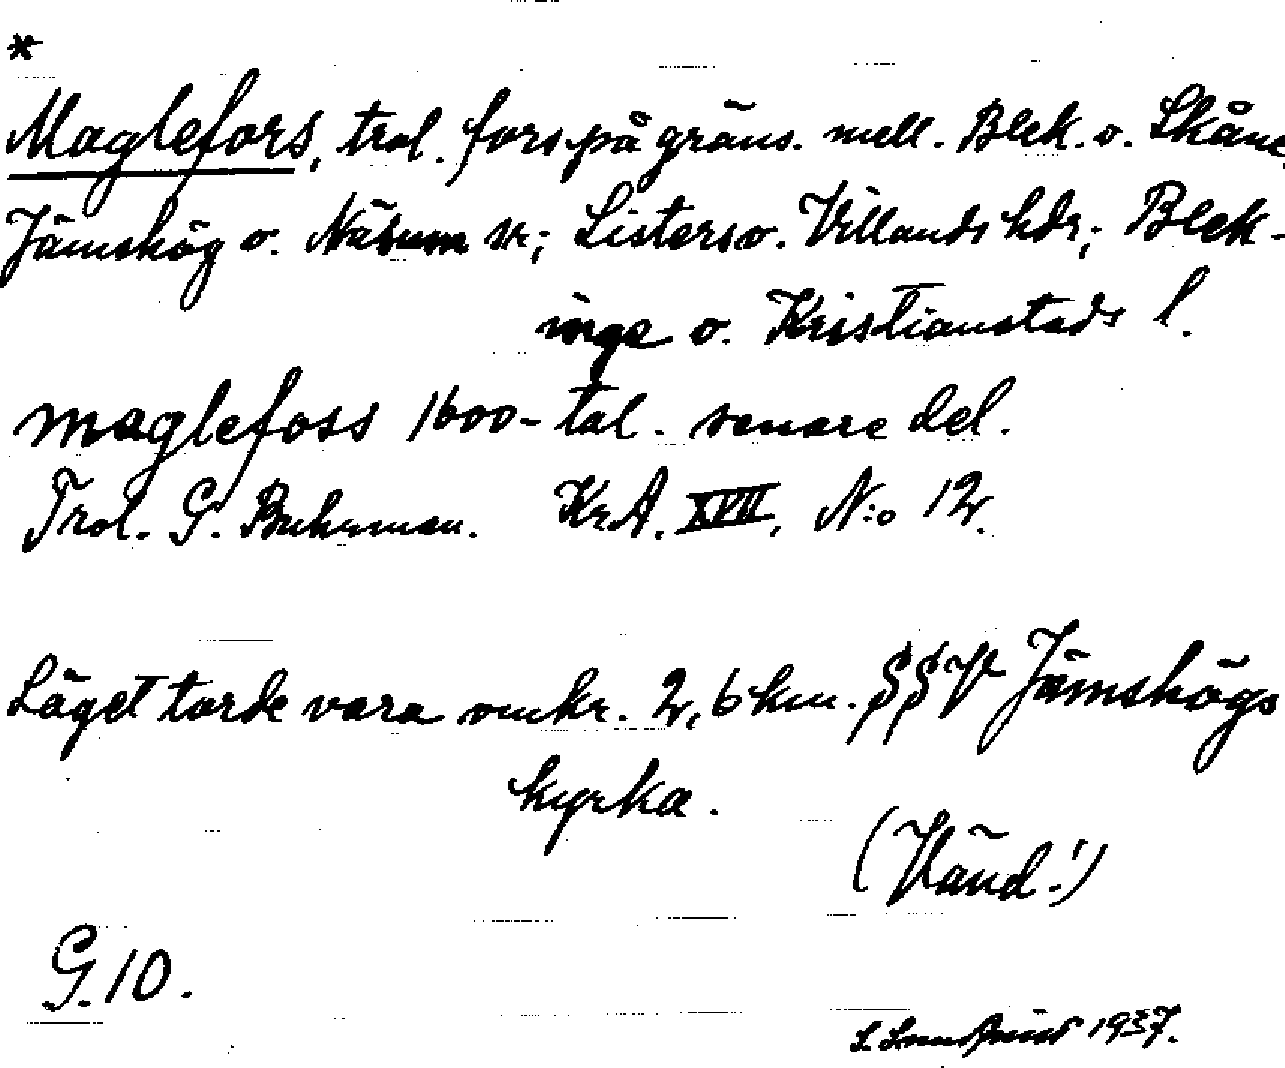 *
Maglefors, trol. fors på gräns. mell. Blek. o. Skåne
Jämshög o. Näsum sr; Listers o. Villands hdr; Blek-
inge o. Kristianstads l.
maglefoss 1600-tal. senare del.
Trol. G. Buhrman. KrA. XVII, N:o 12.
Läget torde vara omkr. 2,6 km. SSV Jämshögs
kyrka.
(Vänd!)
G. 10.
1937.